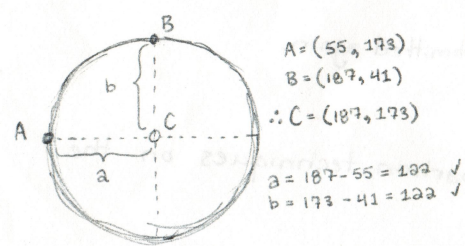 B
A = (55, 173)
B = (187, 41)
b
∴ C = (187, 173)
A
C
a
a = 187 - 55 = 122 ✓
b = 173 - 41 = 122 ✓